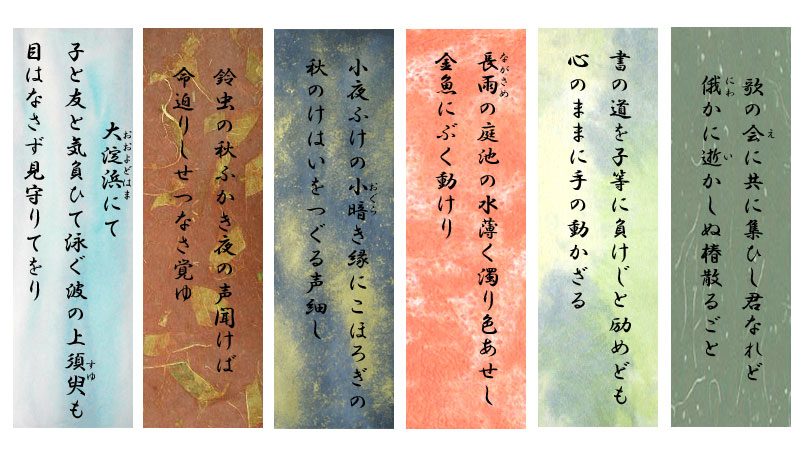 歌の会に共に集ひし君なれど
俄かに逝かしぬ椿散るごと
書の道を子等に負けじと励めども
心のままに手の動かざる
長雨の庭池の水薄く濁り色あせし
金魚にぶく動けり
小夜ふけの小暗き縁にこほろぎの
秋のけはいをつぐる声細し
鈴虫の秋ふかき夜の声聞けば
命迫りしせつなさ覚ゆ
大淀浜にて
子と友と気負ひて泳ぐ波の上須臾も
目はなさず見守りてをり